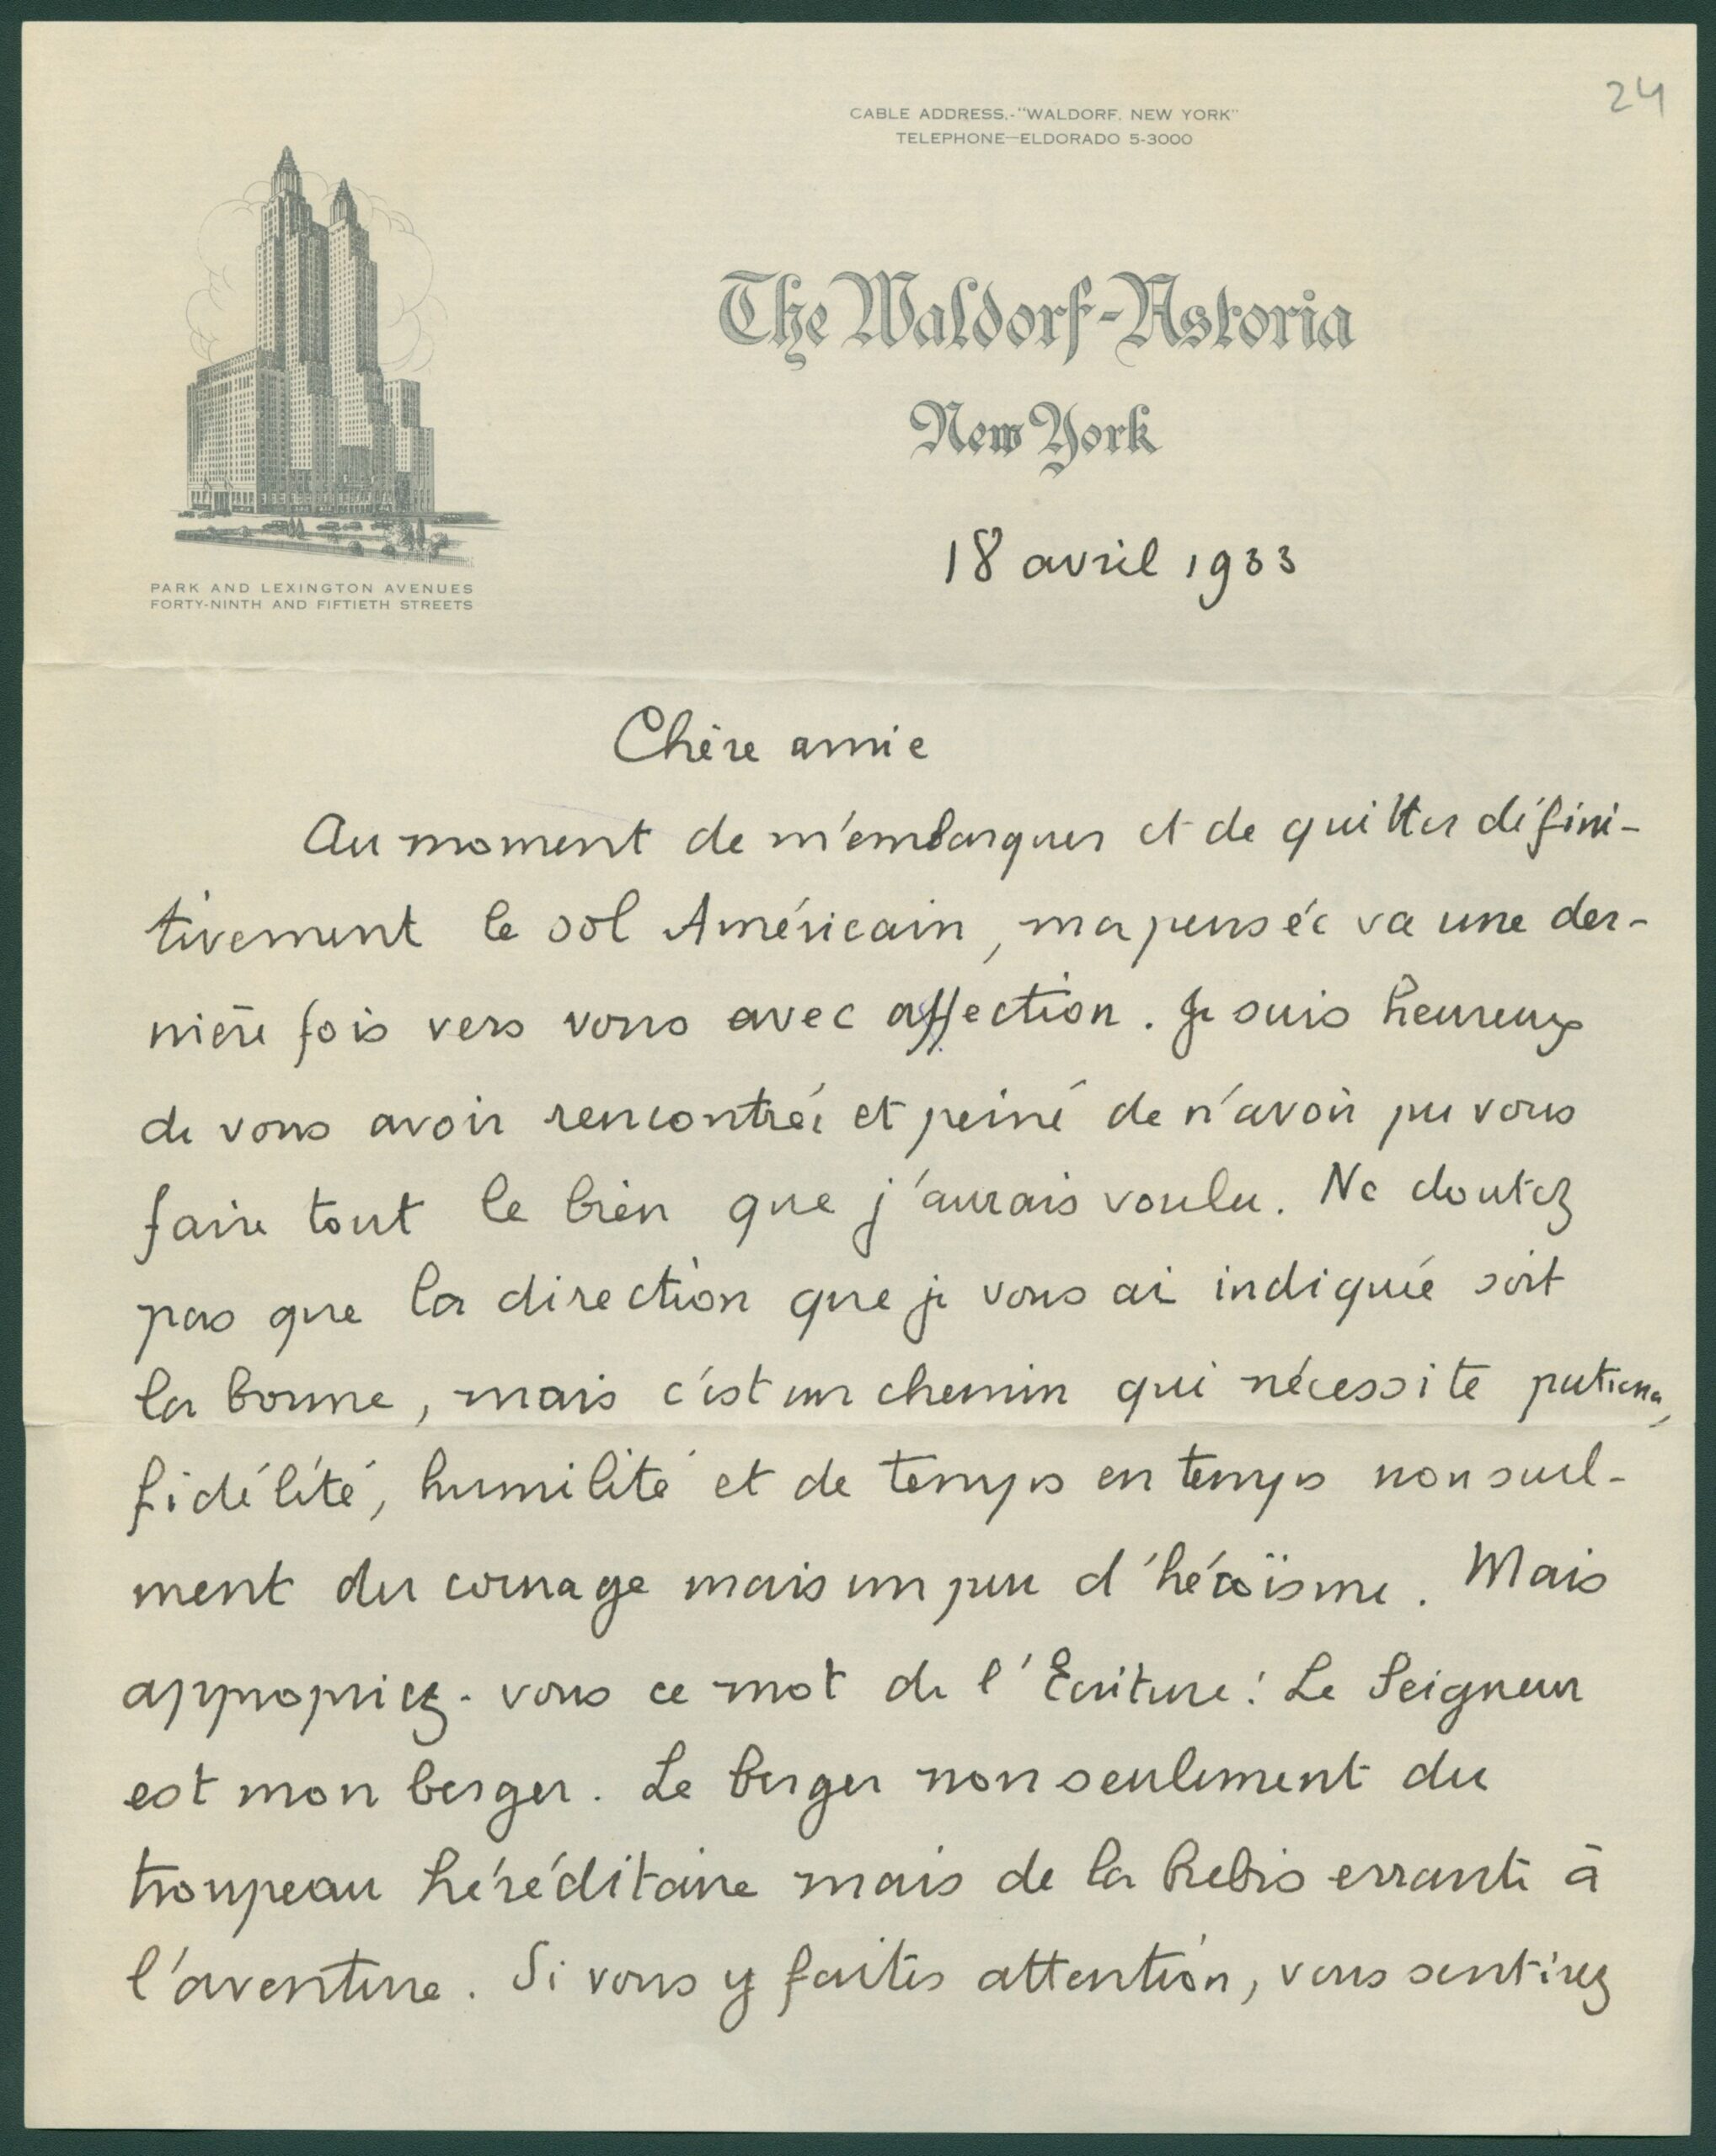 24
CABLE ADDRESS.-"WALDORF, NEW YORK"
TELEPHONE—ELDORADO 5-3000
The Waldorf-Astoria
New York
PARK AND LEXINGTON AVENUES
FORTY-NINTH AND FIFTIETH STREETS
18 avril 1933
Chère amie
Au moment de m'embarquer et de quitter défini-
tivement le sol Américain, ma pensée va une der-
nière fois vers vous avec affection. Je suis heureux
de vous avoir rencontrée et peiné de n'avoir pu vous
faire tout le bien que j'aurais voulu. Ne doutez
pas que la direction que je vous ai indiquée soit
la bonne, mais c'est un chemin qui nécessite patience,
fidélité, humilité et de temps en temps non seul-
ment du courage mais un peu d'héroïsme. Mais
appropriez-vous ce mot de l'Ecriture: Le Seigneur
est mon berger. Le berger non seulement du
troupeau héréditaire mais de la brebis errante à
l'aventure. Si vous y faites attention, vous sentirez